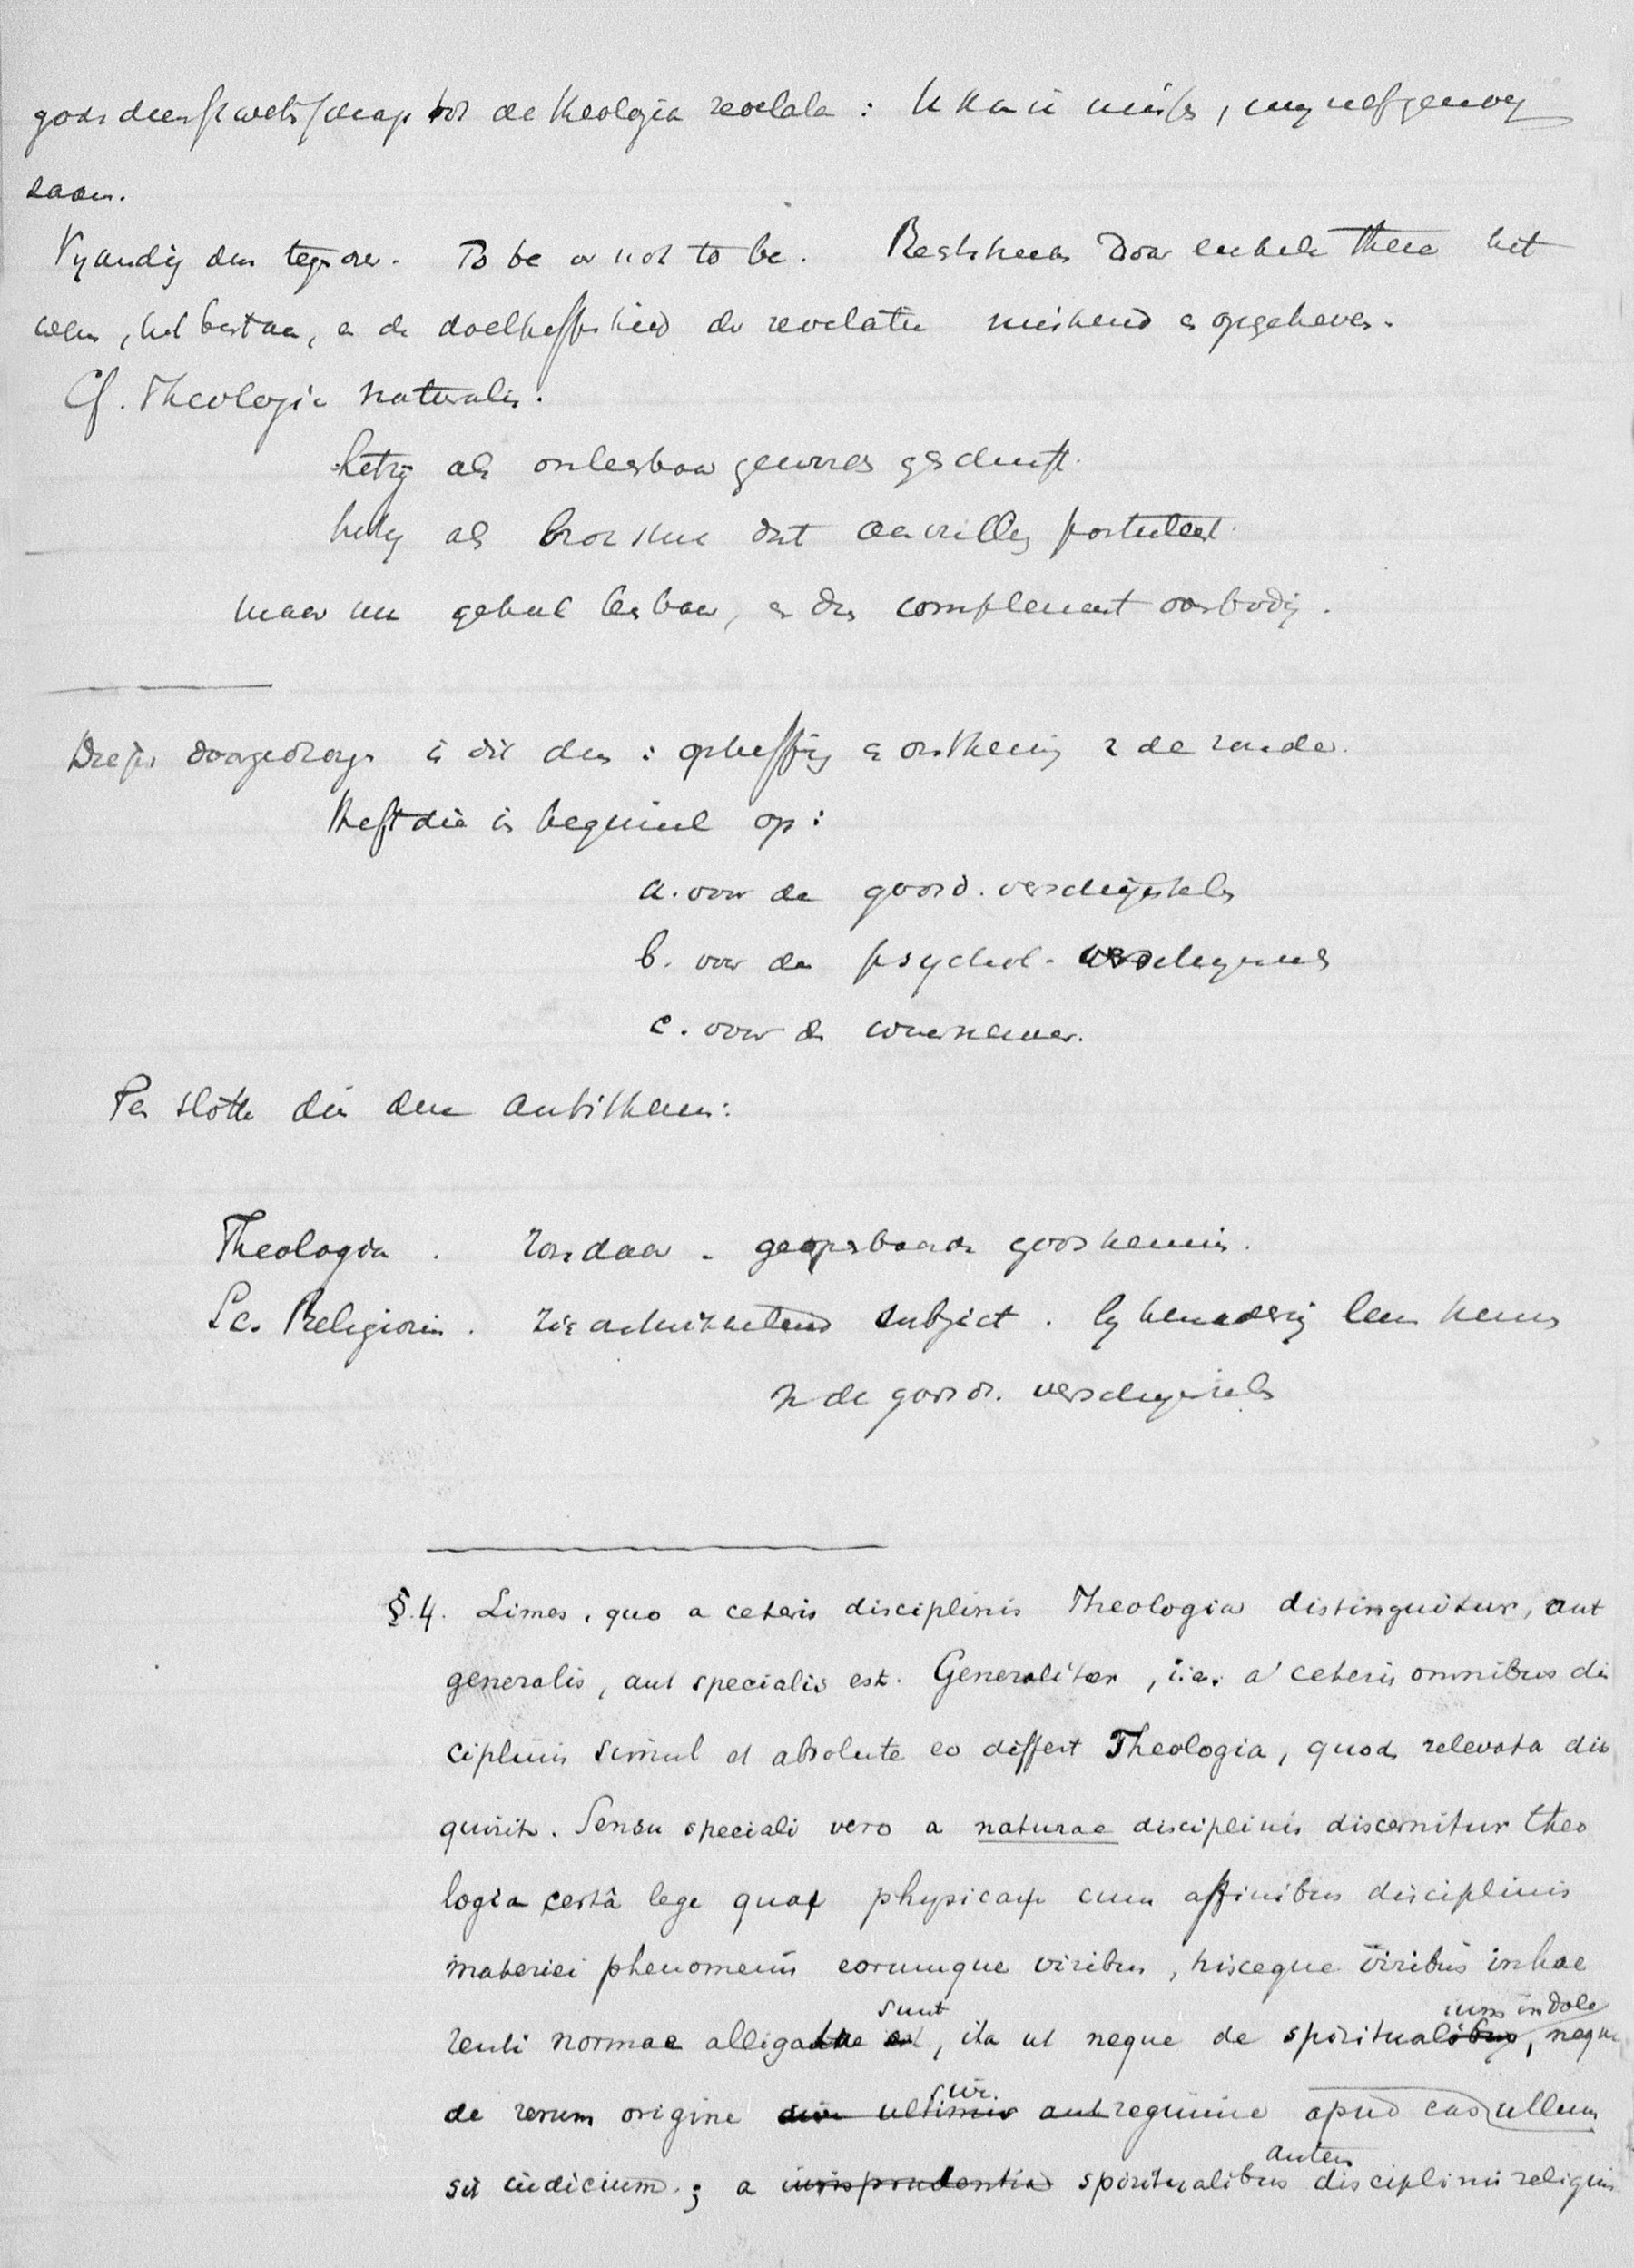 godsdienstwetenschap tot de theologia revelata :
Vyandig dan tegenover. To be or not to be. Rechtstreeks door enkele these het
wezen, het bestaan, en de doeltreffendheid der revelatie miskend en opgeheven.
Cf. Theologia naturalis.
hetzij als onleesbaar geworden geschrift.
hetzij als brokstuk dat aanvulling postuleert.
maar nu geheel leesbaar, en dus complement overbodig.
Diepst doorgedrongen is dit dan : opheffing en ontkenning v de zonde.
Theft die is begrensd op :
a. voor de godsd. verschijnselen
b. voor de psychol. verschijnsels
c. voor de waarnemer.
Ten slotte dus deze antithesen:
Theologia . zondaar - geopenbaarde godskennis.
Sc. Religionis . zich ontwikkelend subject . bij benadering leeren kennen
v de godsd. verschijnsels
§.4. Limes, quo a ceteris disciplinis Theologia distinguitur, aut
generalis, aut specialis est. Generaliter, i.e. a ceteris omnibus dis
ciplinis simul et absolute eo differt Theologia, quod relevata dis
quirit. Sensu speciali vero a naturae disciplinis discernitur theo
logia certâ lege quae physicae cum affinibus disciplinis
materiei phenomenis eorumque viribus, hisceque viribus inhae
sunt ium indole
renti normae alligatae est, ita ut neque de spiritualibus, neque
sive
de rerum origine sive ultimis aut regimine apud eas ullum
autem
sit iudicium ; a iurisprudentia spiritualibus disciplinis religuis